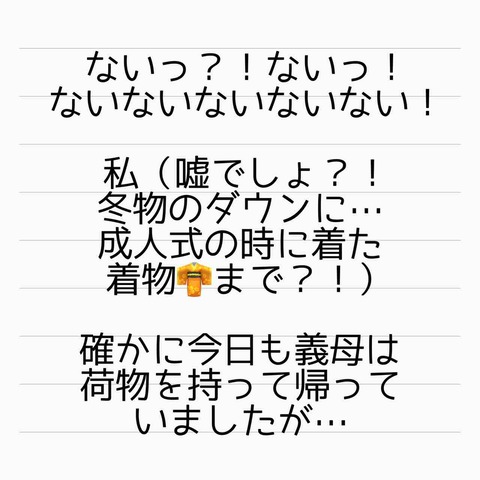 ないっ？！ないっ！
ないないないないない！
私（嘘でしょ？！
冬物のダウンに…
成人式の時に着た
着物👘まで？！）
確かに今日も義母は
荷物を持って帰って
いましたが…